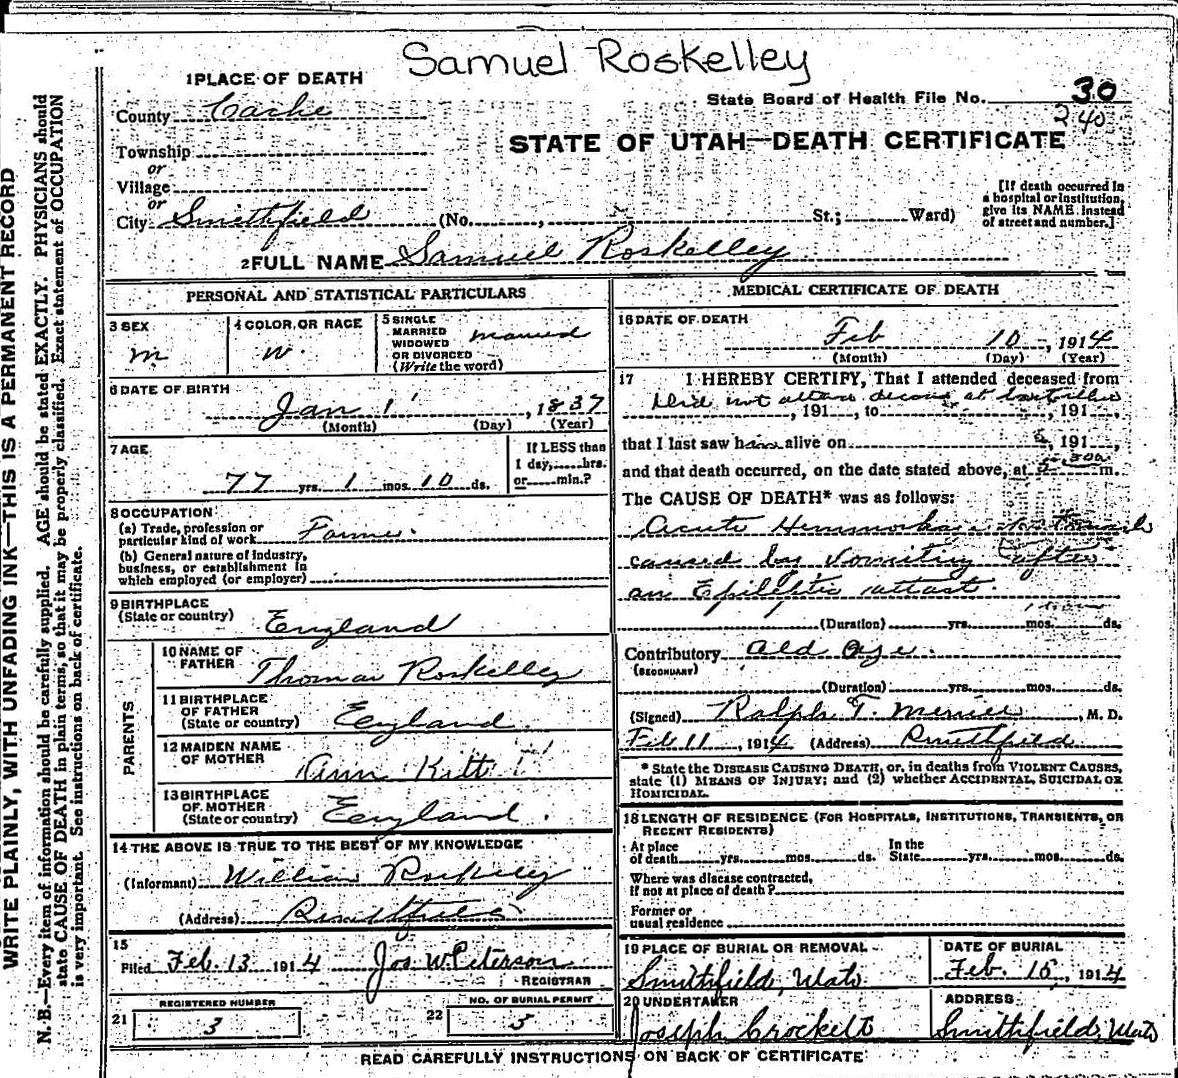 Samuel Roskelley
1 PLACE OF DEATH
County Cache
State Board of Health File No. 30
240
STATE OF UTAH—DEATH CERTIFICATE
Township
or
Village
or
City Smithfield (No. St.; Ward)
[If death occurred in
a hospital or institution,
give its NAME instead
of street and number.]
2 FULL NAME Samuel Roskelley
PERSONAL AND STATISTICAL PARTICULARS
3 SEX
m
4 COLOR OR RACE
w.
5 SINGLE
MARRIED
WIDOWED
OR DIVORCED
(Write the word)
married
6 DATE OF BIRTH
Jan 1, 1837
(Month) (Day) (Year)
7 AGE
77 yrs. 1 mos. 10 ds.
If LESS than
1 day, hrs.
or min.?
8 OCCUPATION
(a) Trade, profession or
particular kind of work Farmer.
(b) General nature of industry,
business, or establishment in
which employed (or employer)
9 BIRTHPLACE
(State or country) England
PARENTS
10 NAME OF
FATHER Thomas Roskelley
11 BIRTHPLACE
OF FATHER
(State or country) England.
12 MAIDEN NAME
OF MOTHER Ann Kitt
13 BIRTHPLACE
OF MOTHER
(State or country) England.
14 THE ABOVE IS TRUE TO THE BEST OF MY KNOWLEDGE
(Informant) William Roskelley
(Address) Smithfield
15
Filed Feb. 13 1914 Jos. W. Peterson
REGISTRAR
REGISTERED NUMBER
21 3
NO. OF BURIAL PERMIT
22 3
MEDICAL CERTIFICATE OF DEATH
16 DATE OF DEATH
Feb 10, 1914
(Month) (Day) (Year)
17 I HEREBY CERTIFY, That I attended deceased from
Did not attend at
, 191 , to , 191 ,
that I last saw him alive on , 191 ,
and that death occurred, on the date stated above, at m.
The CAUSE OF DEATH* was as follows:
Acute stomach
caused by vomiting after
an Epileptic attack.
(Duration) yrs. mos. ds.
Contributory Old Age.
(SECONDARY)
(Duration) yrs. mos. ds.
(Signed) Ralph T. Merrill, M. D.
Feb 11, 1914 (Address) Smithfield
* State the DISEASE CAUSING DEATH, or, in deaths from VIOLENT CAUSES,
state (1) MEANS OF INJURY; and (2) whether ACCIDENTAL, SUICIDAL OR
HOMICIDAL.
18 LENGTH OF RESIDENCE (FOR HOSPITALS, INSTITUTIONS, TRANSIENTS, OR
RECENT RESIDENTS)
At place
of death yrs. mos. ds. In the
State yrs. mos. ds.
Where was disease contracted,
If not at place of death?
Former or
usual residence
19 PLACE OF BURIAL OR REMOVAL
Smithfield, Utah
DATE OF BURIAL
Feb. 15, 1914
20 UNDERTAKER
Joseph Crockett
ADDRESS
Smithfield, Utah
READ CAREFULLY INSTRUCTIONS ON BACK OF CERTIFICATE
WRITE PLAINLY, WITH UNFADING INK—THIS IS A PERMANENT RECORD
N. B.—Every item of information should be carefully supplied. AGE should be stated EXACTLY. PHYSICIANS should
state CAUSE OF DEATH in plain terms, so that it may be properly classified. Exact statement of OCCUPATION
is very important. See instructions on back of certificate.